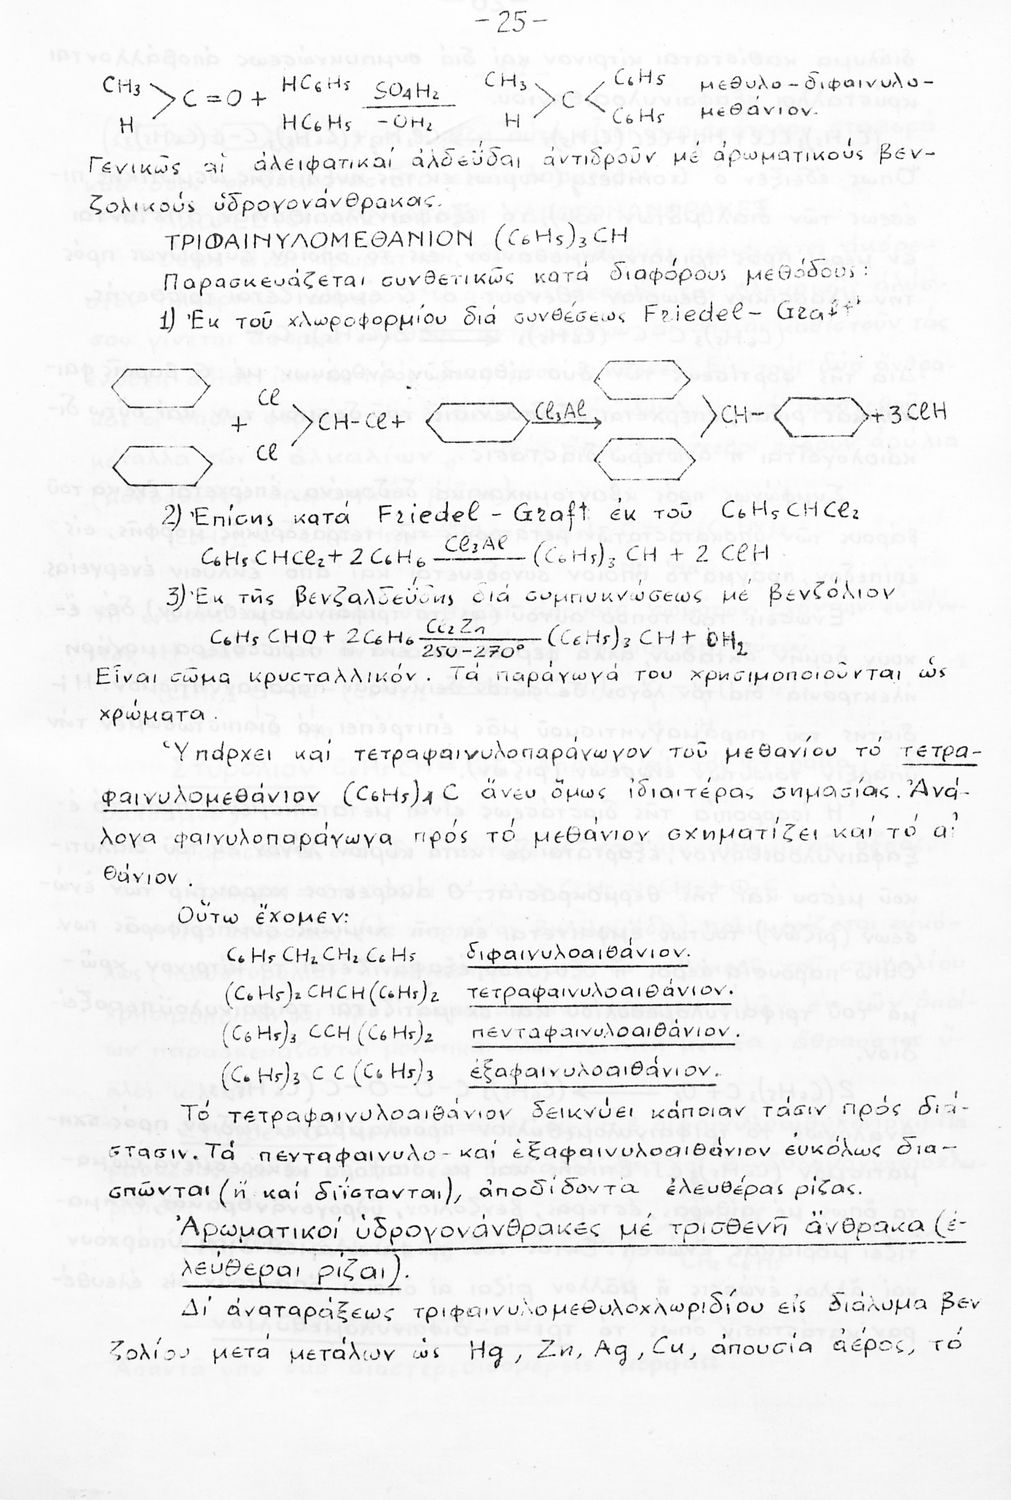 -25-
CH3 \ C=O + HC6H5 SO4H2 CH3 \ C / C6H5 μεθυλο-διφαινυλο-
H / HC6H5 -OH2 H / \ C6H5 μεθάνιον.
Γενικῶς αἱ ἀλειφατικαί ἀλδεΰδαι ἀντιδροῦν μέ ἀρωματικούς βεν-
ζολικούς ὑδρογονάνθρακας.
ΤΡΙΦΑΙΝΥΛΟΜΕΘΑΝΙΟΝ (C6H5)3CH
Παρασκευάζεται συνθετικῶς κατά διαφόρους μεθόδους:
1) Ἐκ τοῦ χλωροφορμίου διά συνθέσεως Friedel-Graft
+ Cl Cl > CH-Cl + Cl3Al > CH- +3ClH
2) Ἐπίσης κατά Friedel-Graft ἐκ τοῦ C6H5CHCl2
C6H5CHCl2 + 2C6H6 Cl3Al (C6H5)3CH + 2ClH
3) Ἐκ τῆς βενζαλδεΰδης διά συμπυκνώσεως μέ βενζόλιον
C6H5CHO + 2C6H6 Cl2Zn 250-270° (C6H5)3CH + OH2
Εἶναι σῶμα κρυσταλλικόν. Τά παράγωγα του χρησιμοποιοῦνται ὡς
χρώματα.
Ὑπάρχει καί τετραφαινυλοπαράγωγον τοῦ μεθανίου τό τετρα-
φαινυλομεθάνιον (C6H5)4C ἄνευ ὅμως ἰδιαιτέρας σημασίας. Ἀνά-
λογα φαινυλοπαράγωγα πρός τό μεθάνιον σχηματίζει καί τό αἰ
θάνιον.
Οὕτω ἔχομεν:
C6H5CH2CH2C6H5 διφαινυλοαιθάνιον.
(C6H5)2CHCH(C6H5)2 τετραφαινυλοαιθάνιον.
(C6H5)3CCH(C6H5)2 πενταφαινυλοαιθάνιον.
(C6H5)3CC(C6H5)3 ἑξαφαινυλοαιθάνιον.
Τό τετραφαινυλοαιθάνιον δεικνύει κάποιαν τάσιν πρός διά-
στασιν. Τά πενταφαινυλο-καί ἑξαφαινυλοαιθάνιον εὐκόλως δια-
σπῶνται (ἤ καί διΐστανται), ἀποδίδοντα ἐλευθέρας ρίζας.
Ἀρωματικοί ὑδρογονάνθρακες μέ τρισθενῆ ἄνθρακα (ἐ-
λεύθεραι ρίζαι).
Δι' ἀναταράξεως τριφαινυλομεθυλοχλωριδίου εἰς διάλυμα βεν
ζολίου μετά μετάλων ὡς Hg, Zn, Ag, Cu, ἀπουσία ἀέρος, τό